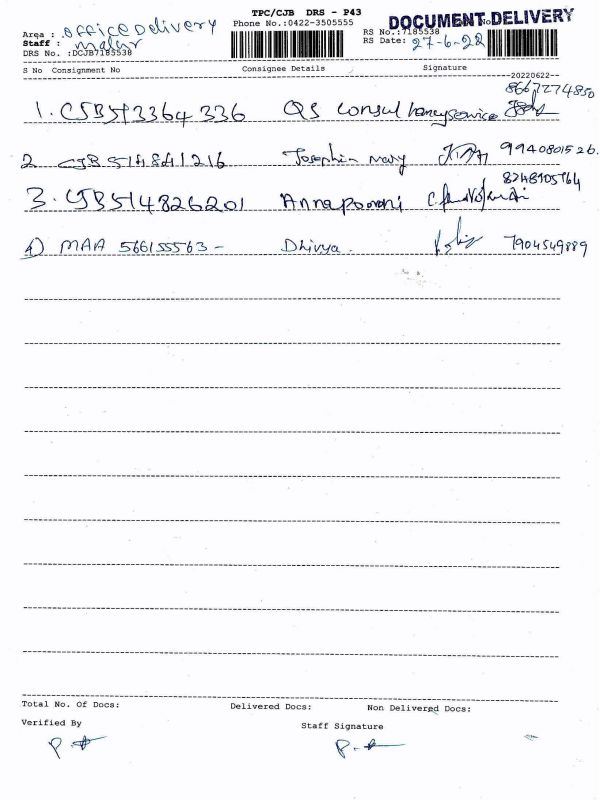 TPC/CJB DRS - P43
DOCUMENT DELIVERY
Area : office Delivery
Phone No.:0422-3505555
RS No.:7185538
Staff : malar
RS Date: 27-6-22
DRS No. :DCJB7185538
S No Consignment No Consignee Details Signature
--20220622--
8667274850
1. CJB513364336 QS Consultancy service
2 CJB 514841216 Josephin mary 9940801526.
8248105764
3. CJB514826201 Annapoorani
4) MAA 566155563 - Dhivya. 7904549889
Total No. Of Docs: Delivered Docs: Non Delivered Docs:
Verified By Staff Signature